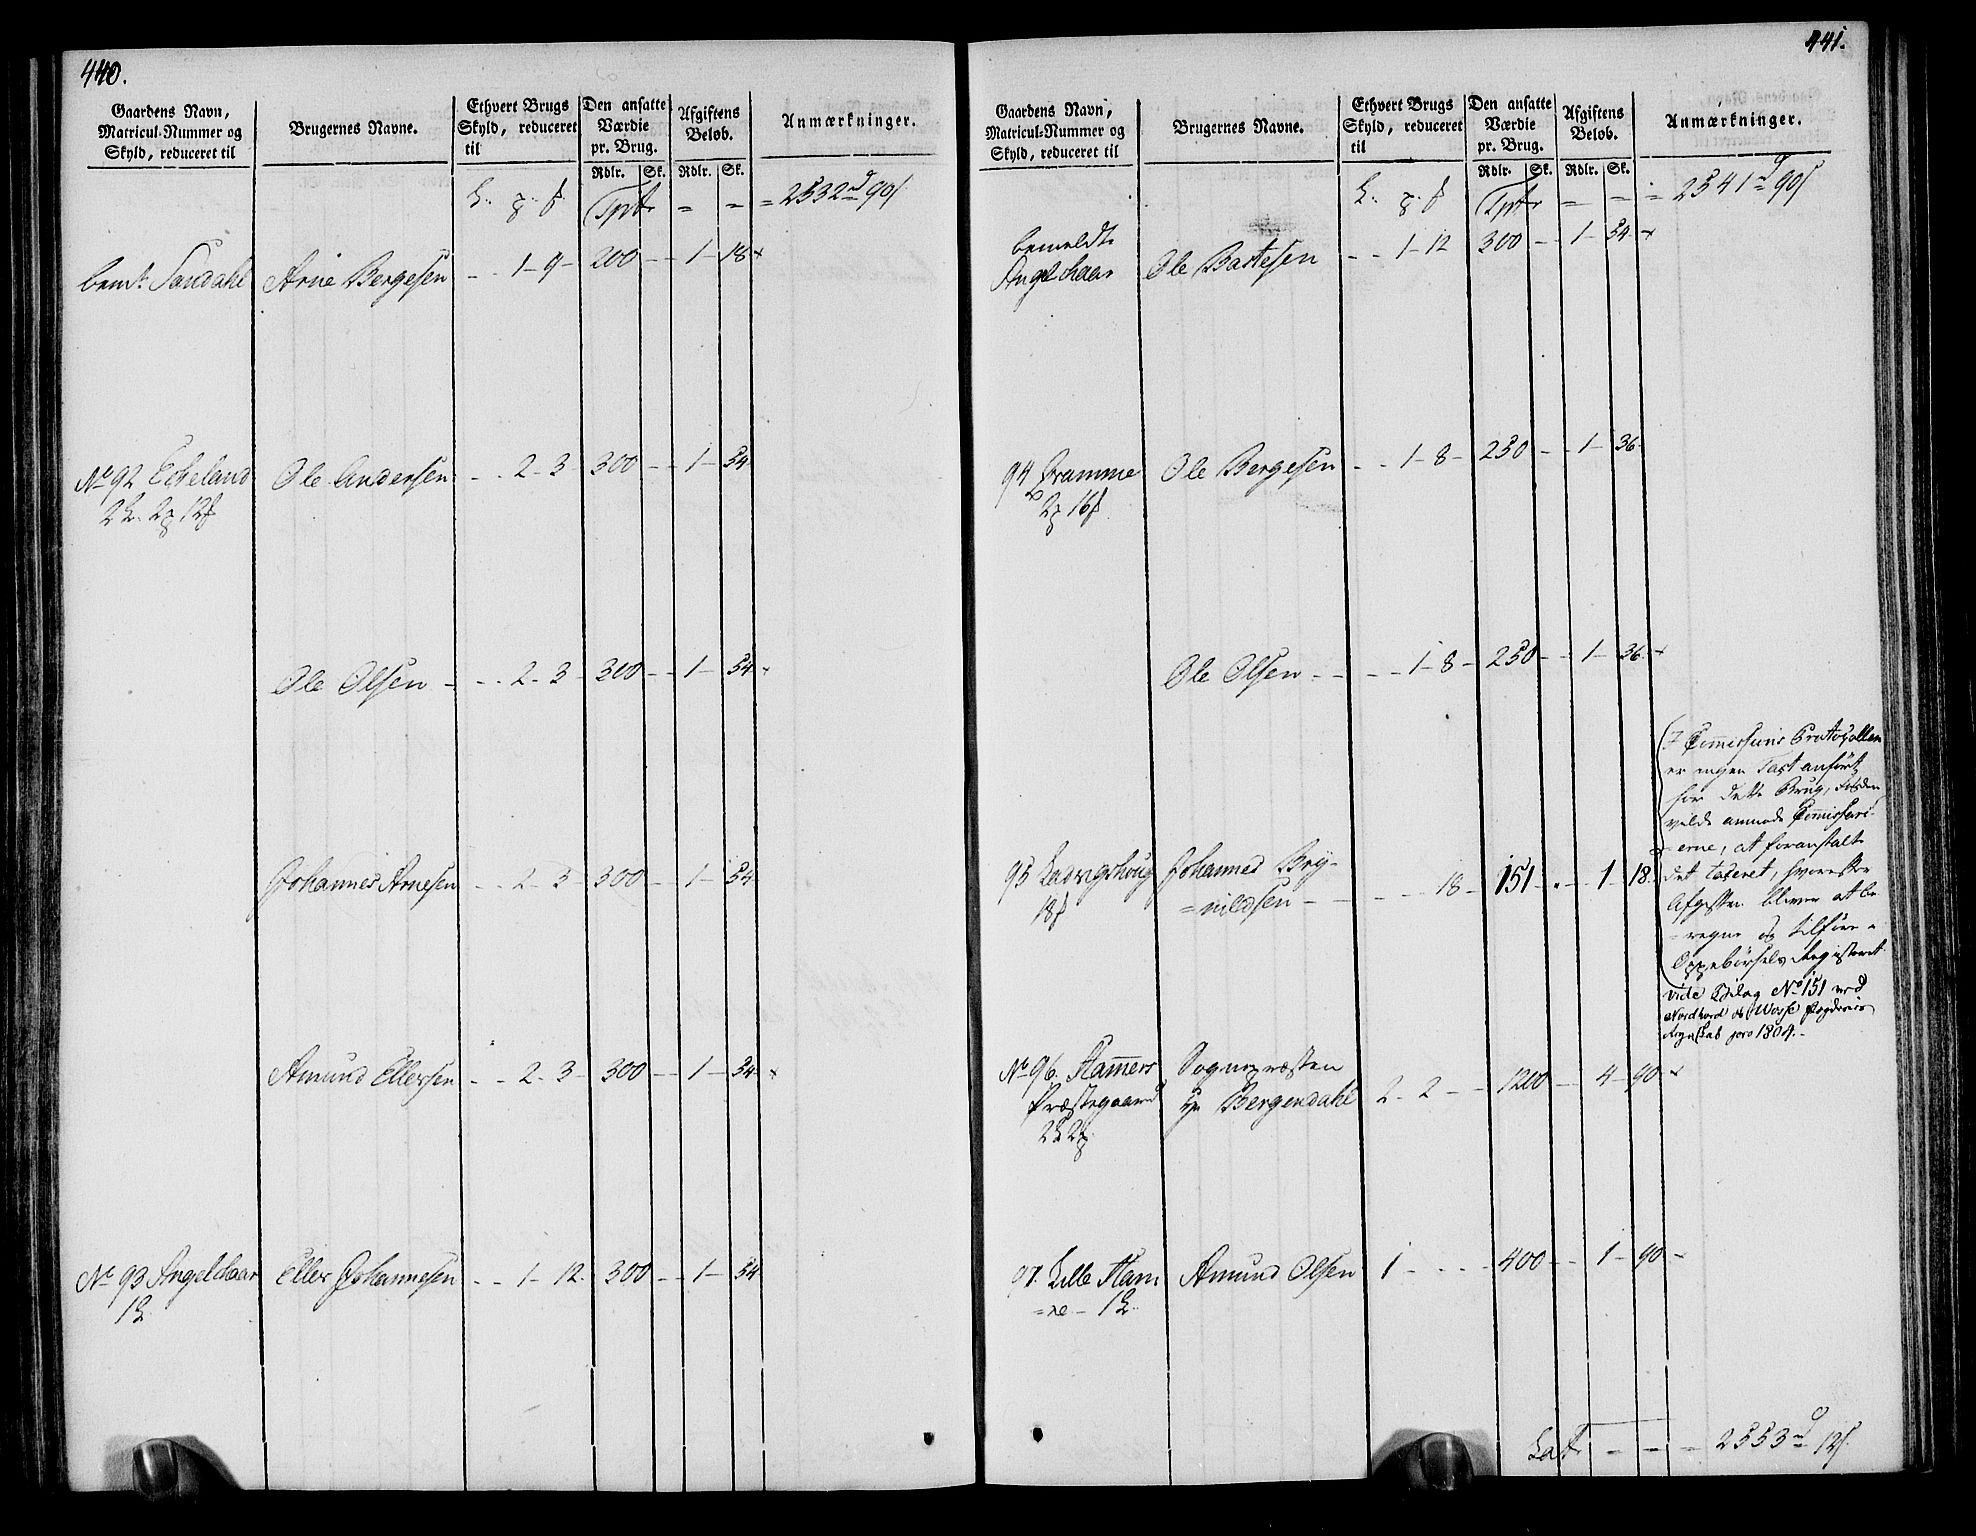 440.
Gaardens Navn, Matricul-Nummer og Skyld, reduceret til
Brugernes Navne.
Ethvert Brugs Skyld, reduceret til
Den ansatte Værdie pr. Brug.
Rdlr. Sk.
Afgiftens Beløb.
Rdlr. Sk.
Anmærkninger.
Tpt = = = 2532 90
bemt Sandahl Arne Bergesen - - 1 - 9 - 200 - - 1 - 18
No 92 Echeland Ole Andersen - - 2 - 3 300 - - 1 - 54
Ole Olsen - - - 2 - 3 - 300 - - 1 - 54
Johannes Arnesen - - 2 - 3 - 300 - - 1 - 54
Amund Ellersen - - 2 - 3 - 300 - - 1 - 54
No 93 Angelskaar Eller Johannesen - - 1 - 12 - 300 - - 1 - 54
441.
Gaardens Navn, Matricul-Nummer og Skyld, reduceret til
Brugernes Navne.
Ethvert Brugs Skyld, reduceret til
Den ansatte Værdie pr. Brug.
Rdlr. Sk.
Afgiftens Beløb.
Rdlr. Sk.
Anmærkninger.
Tpt = = = 2541 90
bemeldte
Angelskaar Ole Bastesen - - 1 - 12 300 - - 1 - 54
94 Dramme Ole Bergesen - - 1 - 8 - 250 - - 1 - 36
Ole Olsen - - - - 1 - 8 - 250 - - 1 - 36
I Commissions Protocollen
er ingen Taxt anført
for dette Brug,
vilde anmode Commissari-
erne, at foranstalte
det Taxeret, hvorefter
Afgiften bliver at be
= regne og tilføre
Oppebørsels Registeret
vide Bilag No 151 ved
Nordhord og Vosse Fogderies
Regnskab pro 1804.
95 Ladvigshoug Johannes Bry-
= nildsen - - - - 18 - 151 - - 1 - 18
No 96. Hamers Sognepræsten
Præstegaard Hr Bergendahl 2 - 2 - - 1200 - - 4 - 90
97. Lille Ham Amund Olsen 1 - - - 400 - - 1 - 90
= re
Lat = = = 2553 12